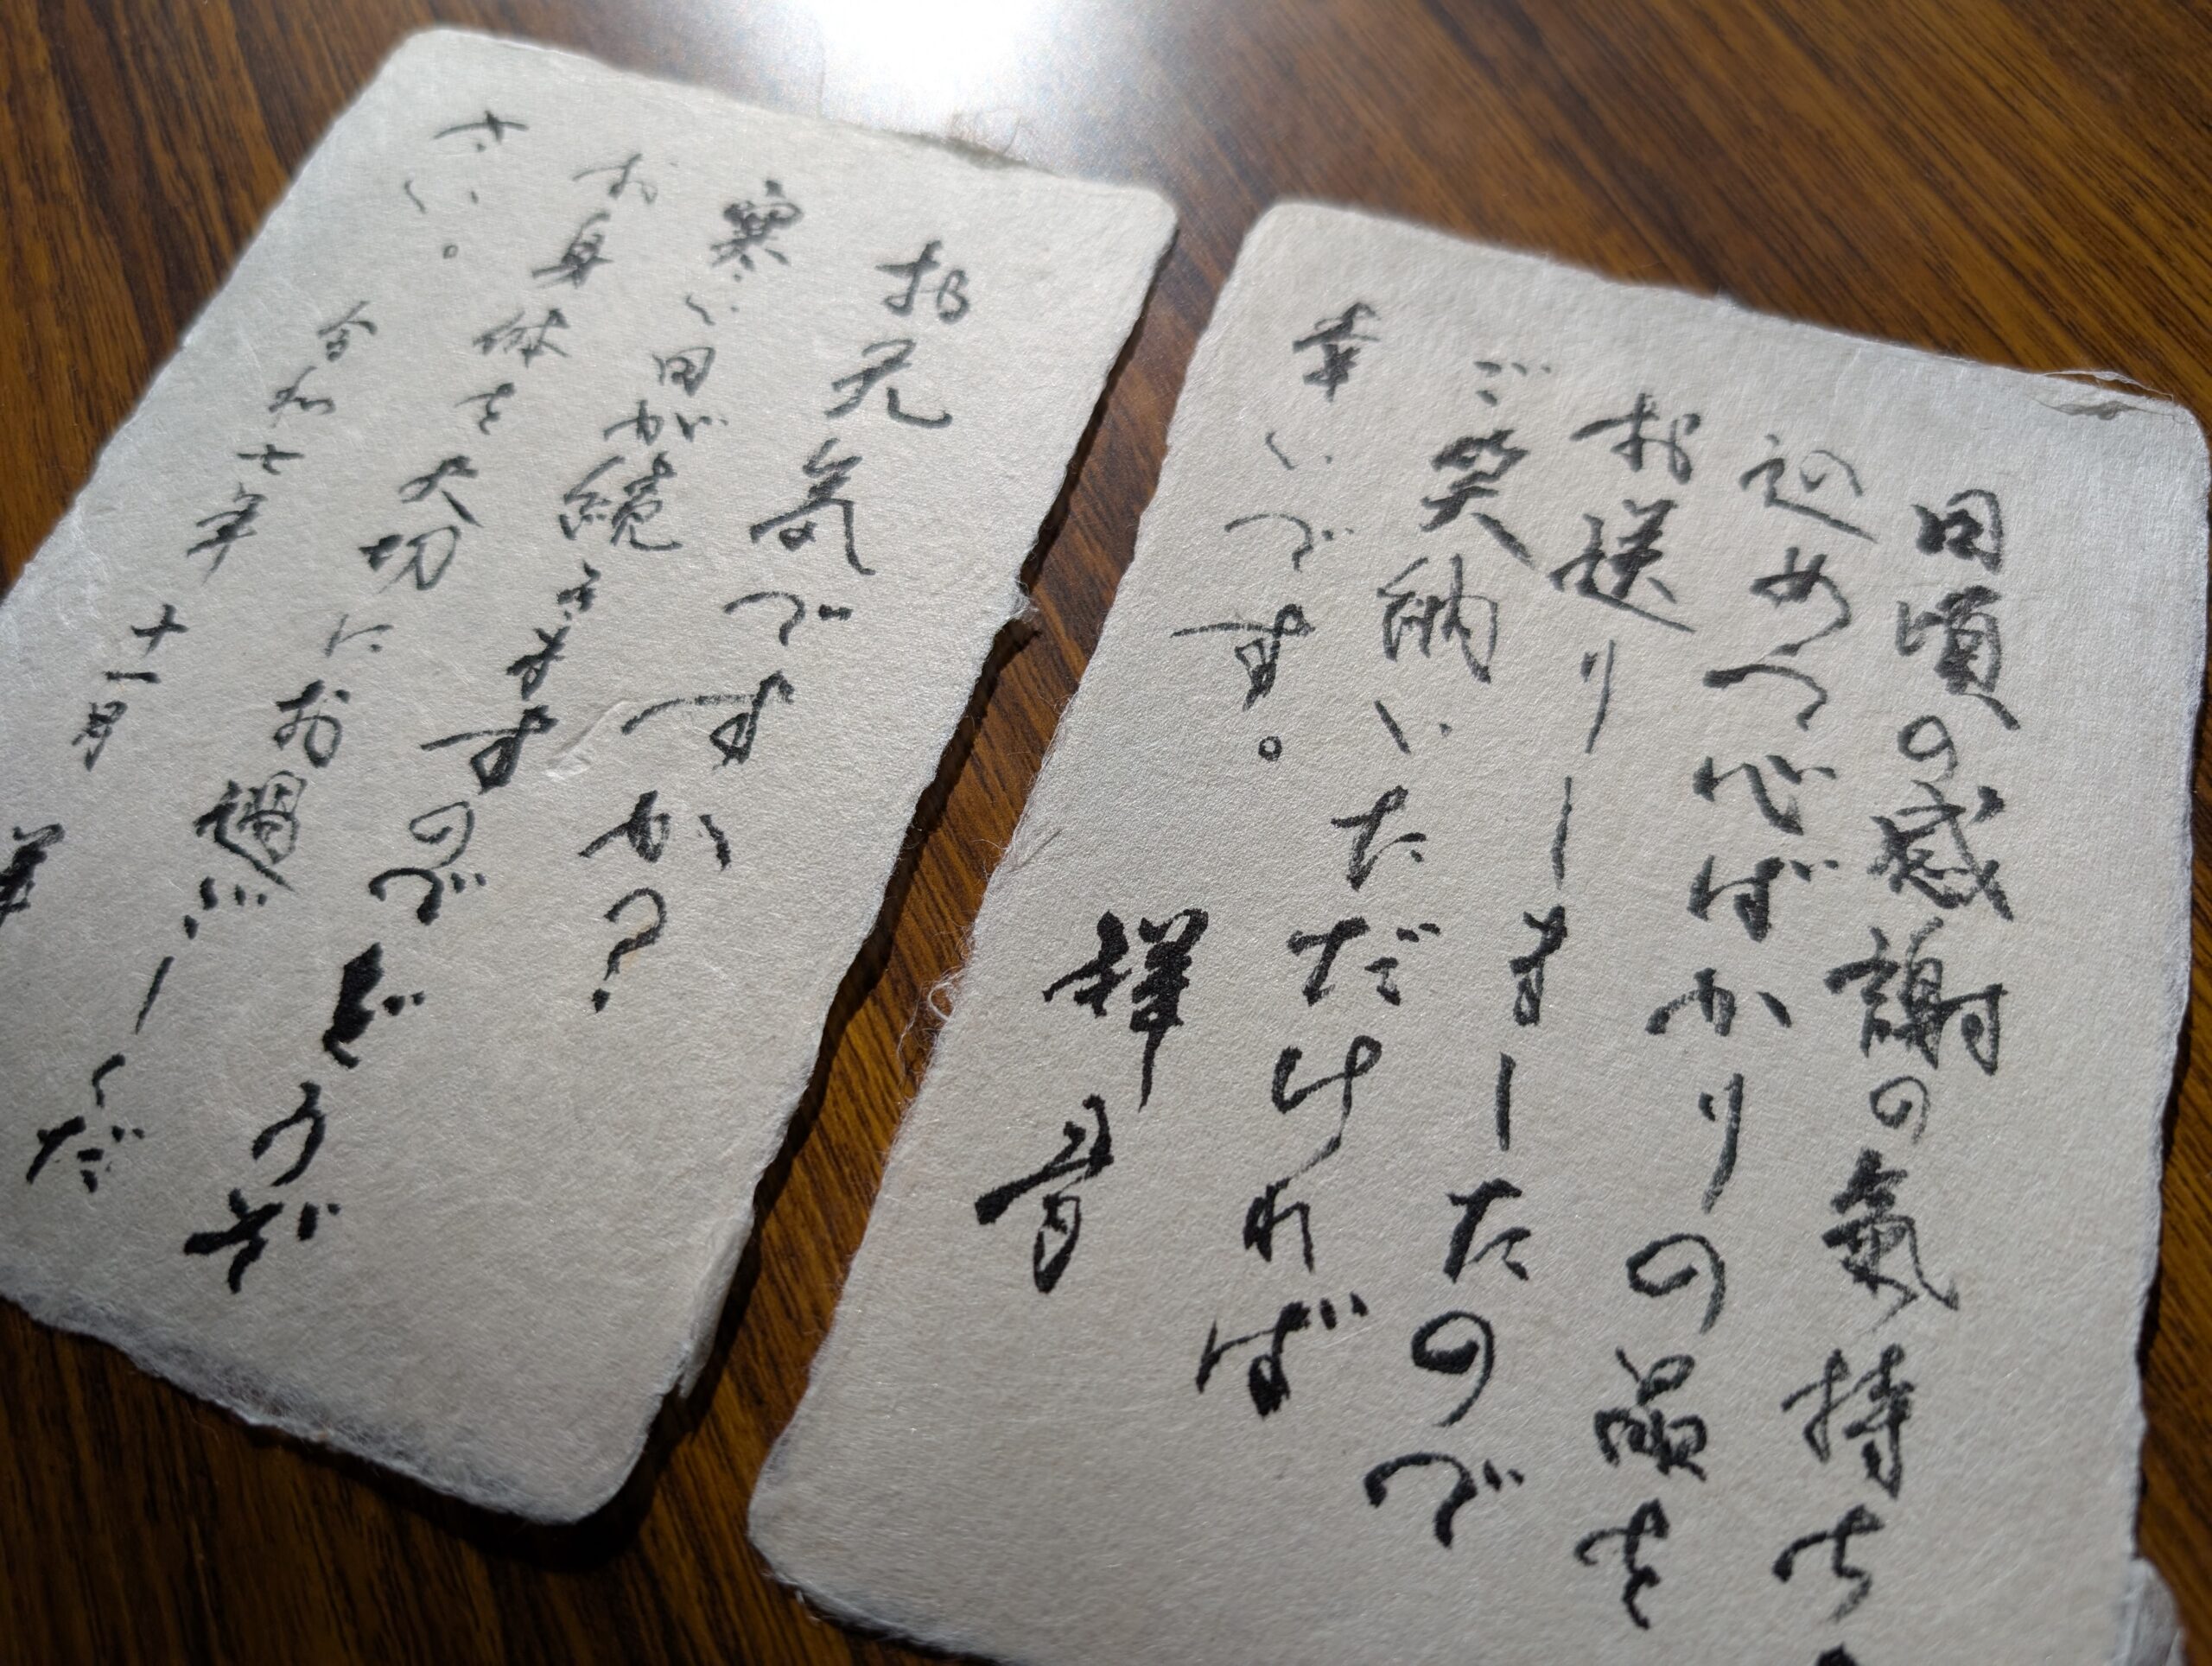 日頃の感謝の氣持ち
込めて心ばかりの品を
お送りしましたので
ご笑納いただければ
幸いです。
お元気ですか?
寒い日が続きますのでどうぞ
お身体を大切にお過ごしくだ
さい。
令和七年 十一月